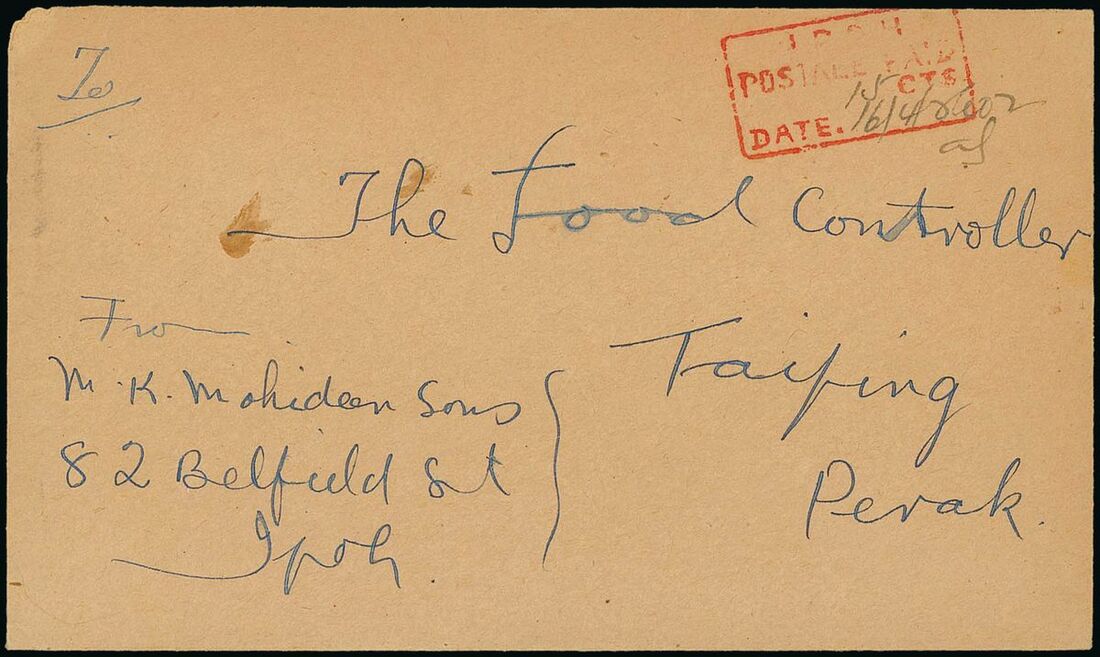 To
IPOH
POSTAGE PAID
15 CTS
DATE. 16/4/2602
The Food Controller
Taiping
Perak.
From
M. K. Mohideen Sons
82 Belfield St
Ipoh.